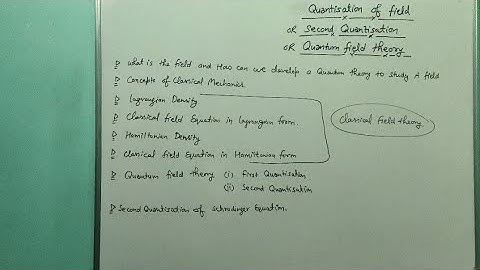 Quantisation of field
OR Second Quantisation
OR Quantum field theory
What is the field and How can we develop a Quantum theory to study A field
Concepts of Classical Mechanics.
Lagrangian Density.
Classical field Equation in Lagrangian form.
Classical field theory
Hamiltonian Density
Classical field Equation in Hamiltonian form
Quantum field theory (i) First Quantisation
(ii) Second Quantisation
Second Quantisation of schrodinger Equation.